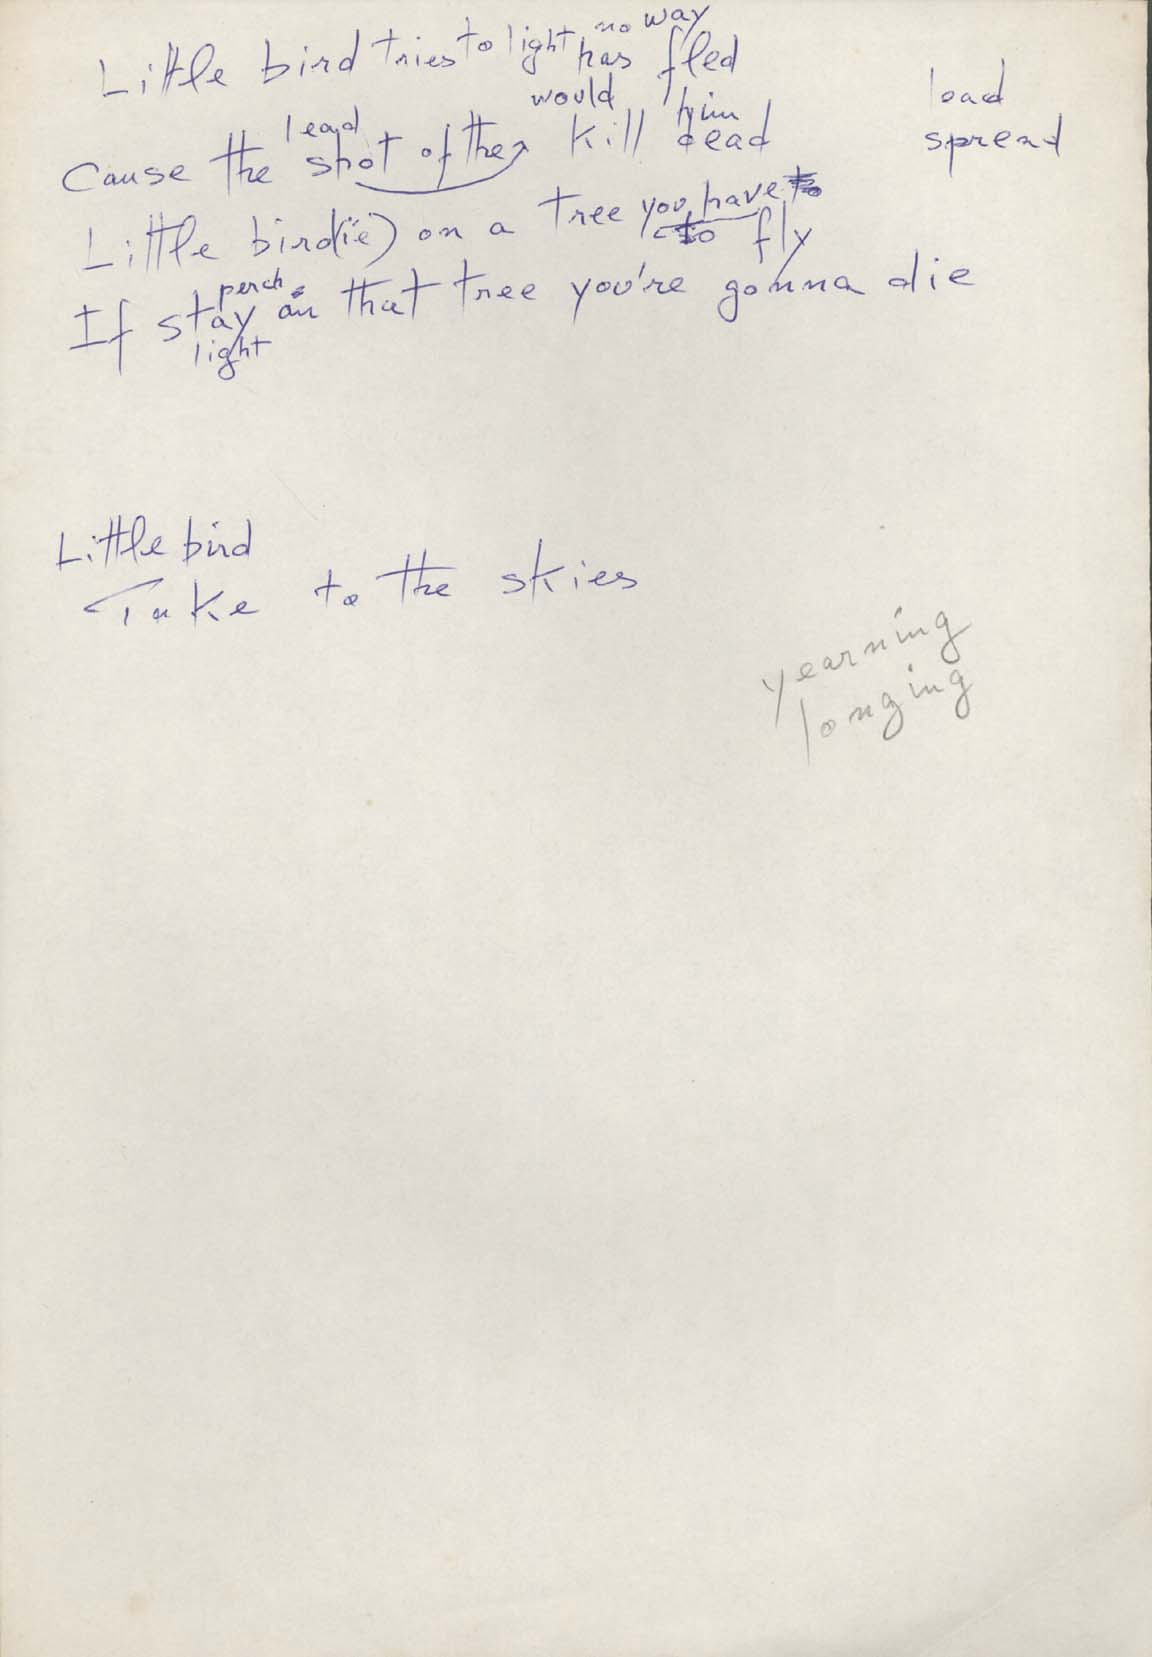 no way
Little bird tries to light has fled
would him lead
lead
Cause the shot of the kill dead spread
Little bird(ie) on a tree you have to
to fly
perch
If stay on that tree you're gonna die
light
Little bird
Take to the skies
yearning
longing